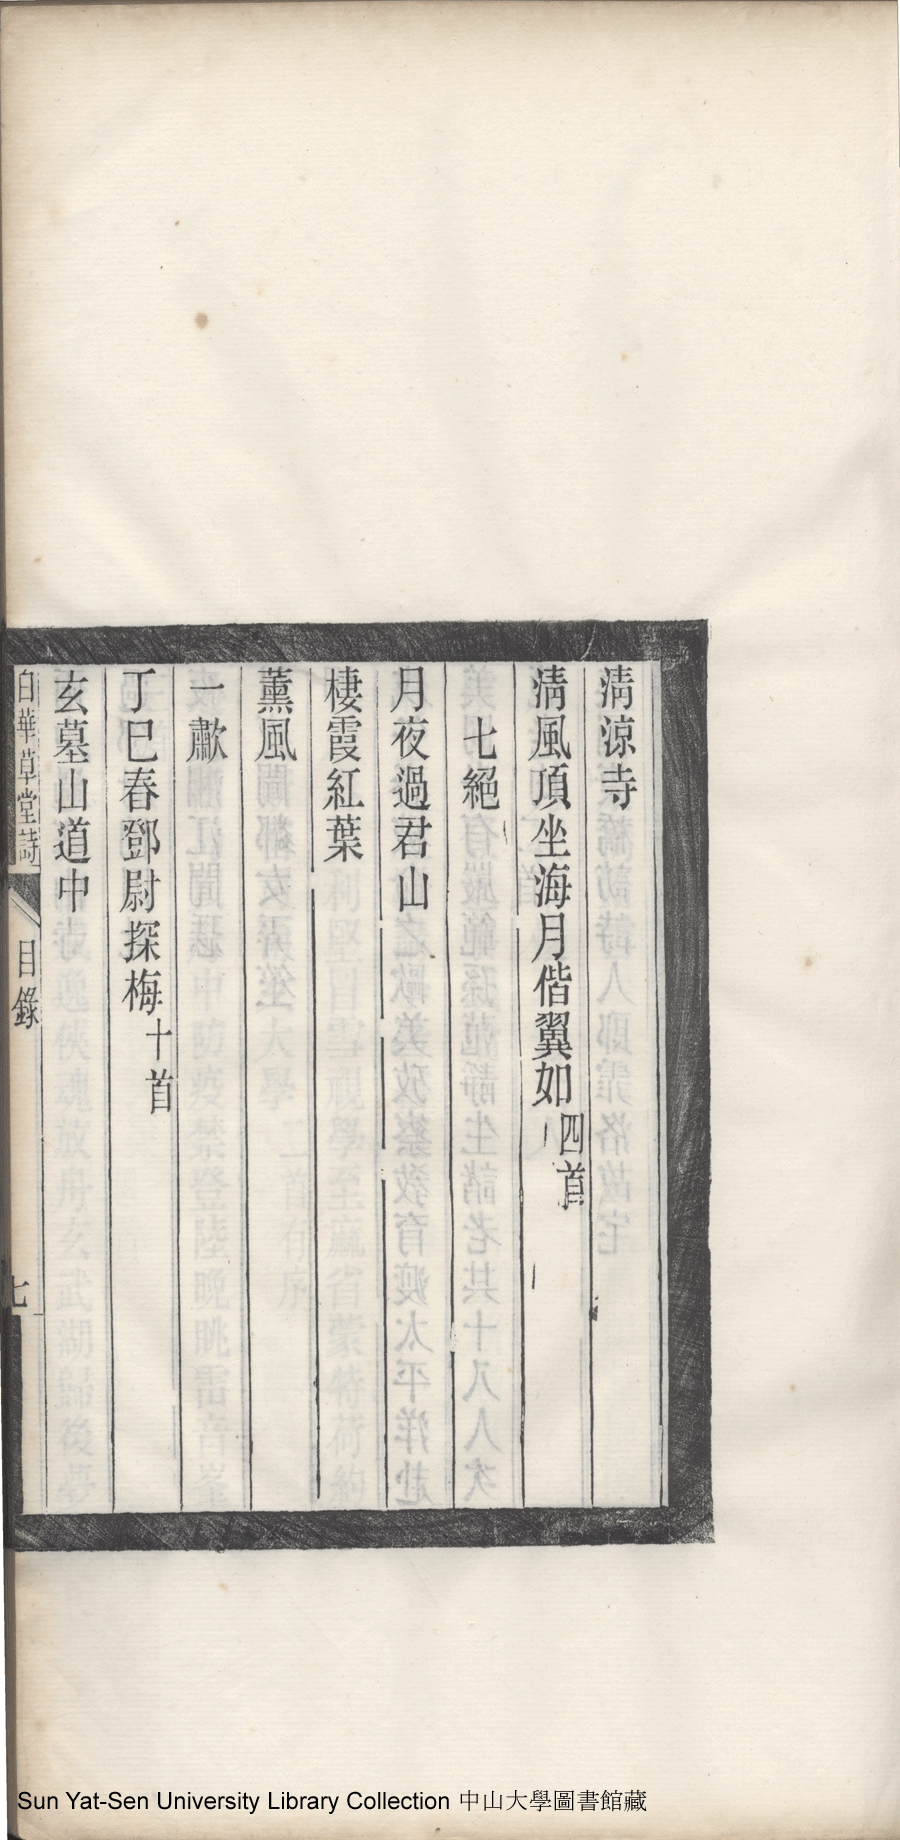 清涼寺
清風頂坐海月偕翼如四首
七絕
月夜過君山
棲霞紅葉
薰風
一歗
丁巳春鄧尉探梅十首
玄墓山道中
白華草堂詩 目錄 七
Sun Yat-Sen University Library Collection 中山大學圖書館藏